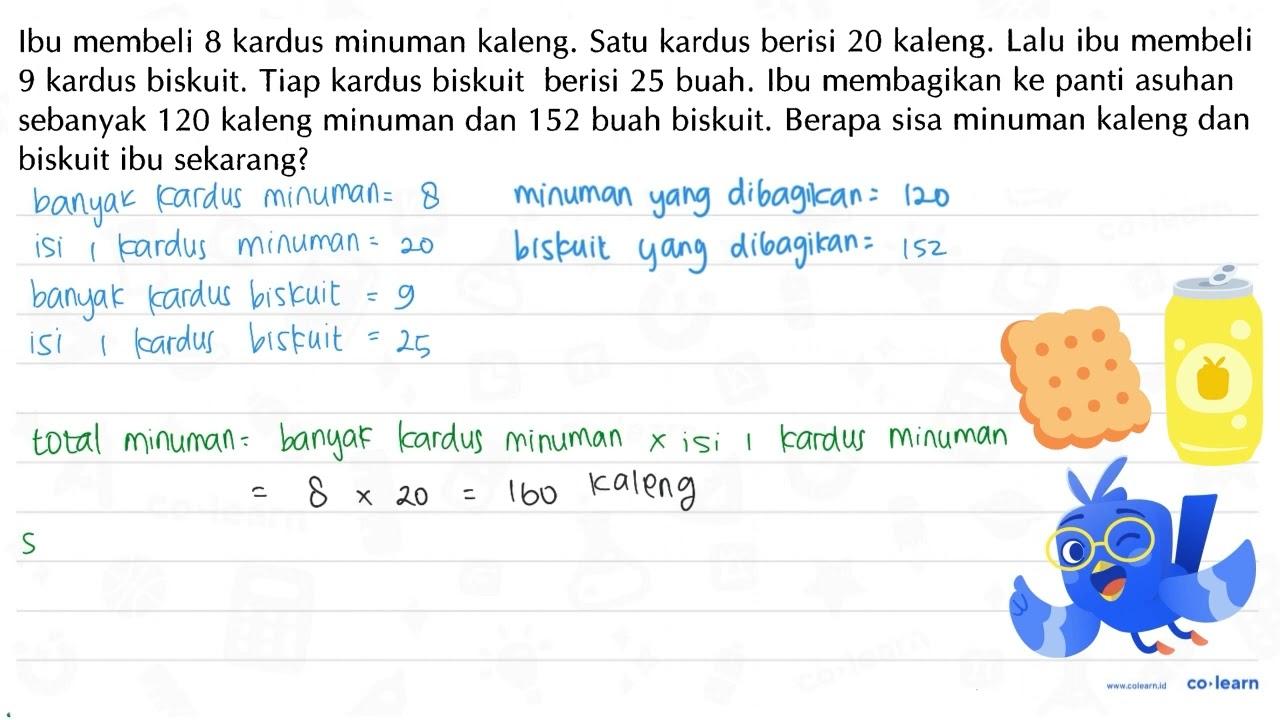 Ibu membeli 8 kardus minuman kaleng. Satu kardus berisi 20 kaleng. Lalu ibu membeli
9 kardus biskuit. Tiap kardus biskuit berisi 25 buah. Ibu membagikan ke panti asuhan
sebanyak 120 kaleng minuman dan 152 buah biskuit. Berapa sisa minuman kaleng dan
biskuit ibu sekarang?
banyak kardus minuman = 8
isi 1 kardus minuman = 20
banyak kardus biskuit = 9
isi 1 kardus biskuit = 25
minuman yang dibagikan = 120
biskuit yang dibagikan = 152
total minuman = banyak kardus minuman x isi 1 kardus minuman
= 8 x 20 = 160 kaleng
S
www.colearn.id co·learn